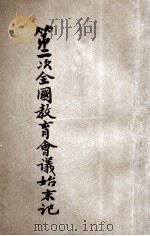 第二次全國教育會議始末記